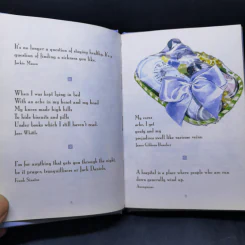 It's no longer a question of staying healthy. It's a
question of finding a sickness you like.
Jackie Mason
When I was kept lying in bed
With an ache in my heart and my head
My knees made high hills
To hide biscuits and pills
Under books which I still haven't read.
Jane Whittle
I'm for anything that gets you through the night,
be it prayer, tranquillizers or Jack Daniels.
Frank Sinatra
My curse
ache, I get
gouty and my
prejudices swell like varicose veins.
James Gibbons Huneker
A hospital is a place where people who are run
down generally wind up.
Anonymous